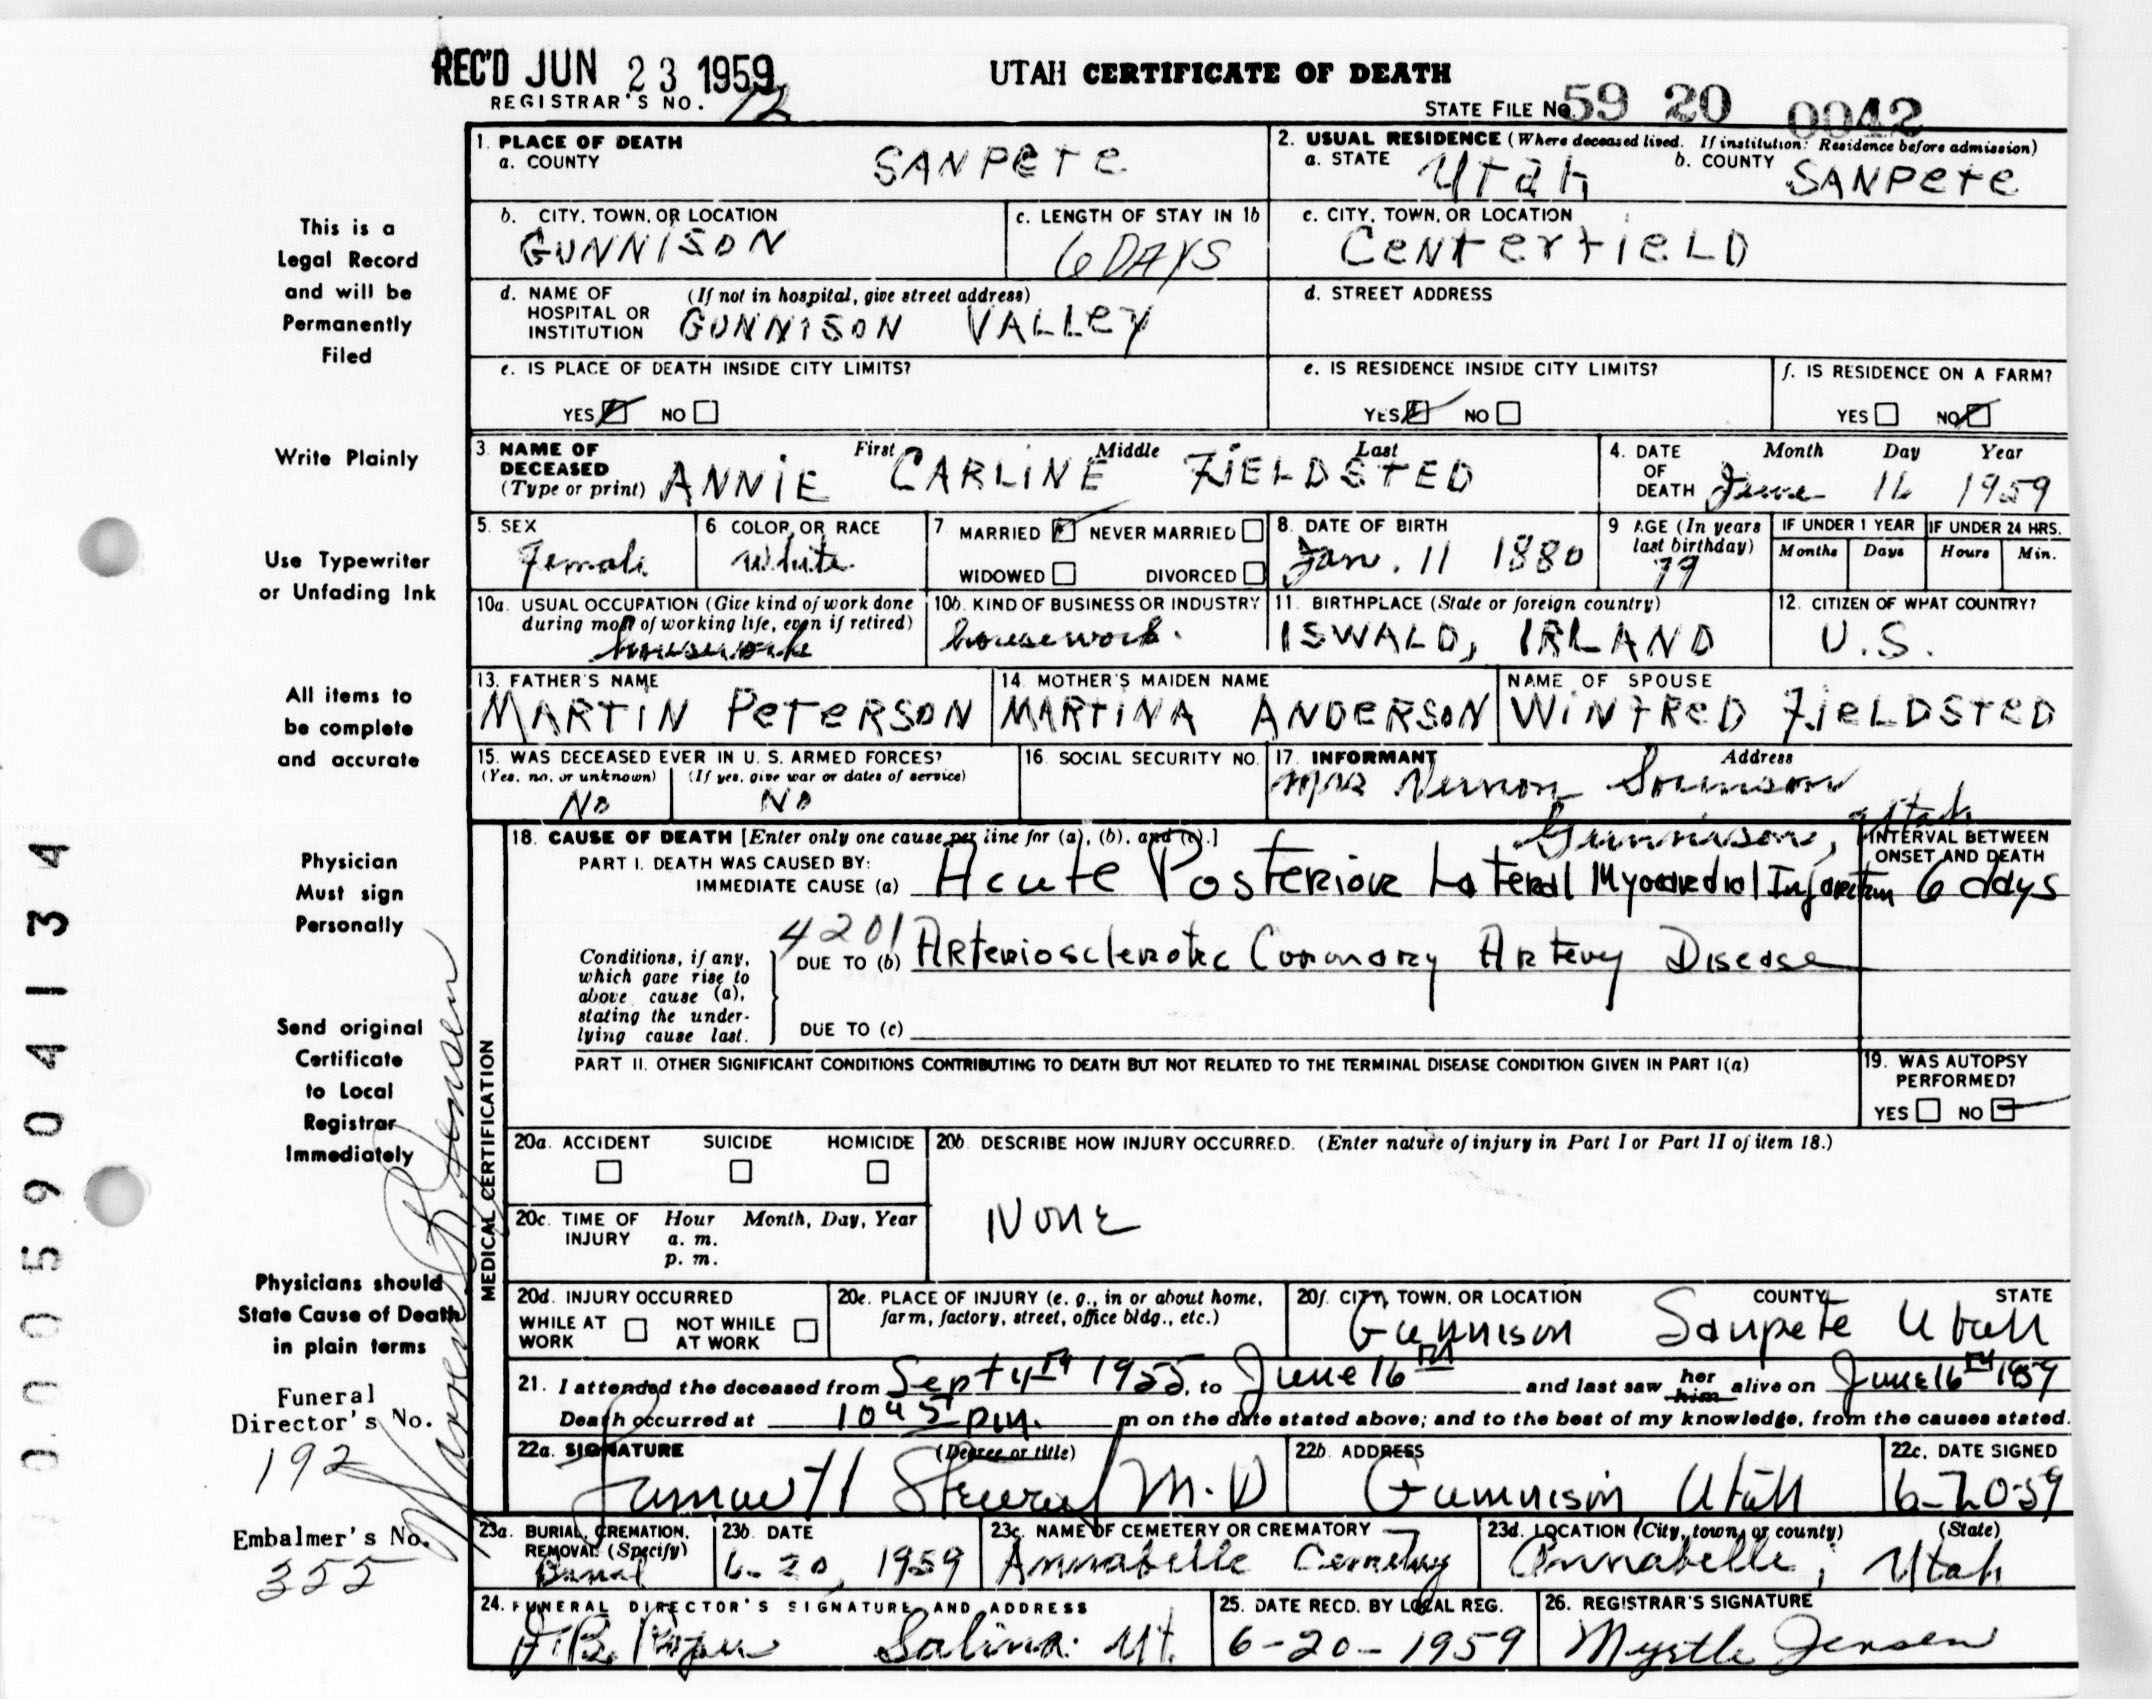 REC'D JUN 23 1959
UTAH CERTIFICATE OF DEATH
REGISTRAR'S NO. 12
STATE FILE No 59 20 0042
1. PLACE OF DEATH
a. COUNTY SANPETE
2. USUAL RESIDENCE (Where deceased lived. If institution: Residence before admission)
a. STATE Utah b. COUNTY SANPETE
b. CITY, TOWN, OR LOCATION GUNNISON
c. LENGTH OF STAY IN 1b 6 DAYS
c. CITY, TOWN, OR LOCATION CENTERFIELD
d. NAME OF HOSPITAL OR INSTITUTION (If not in hospital, give street address) GUNNISON VALLEY
d. STREET ADDRESS
e. IS PLACE OF DEATH INSIDE CITY LIMITS?
YES NO
e. IS RESIDENCE INSIDE CITY LIMITS?
YES NO
f. IS RESIDENCE ON A FARM?
YES NO
3. NAME OF DECEASED (Type or print) First Middle Last
ANNIE CARLINE FIELDSTED
4. DATE OF DEATH Month Day Year
June 16 1959
5. SEX Female
6. COLOR OR RACE White
7 MARRIED NEVER MARRIED
WIDOWED DIVORCED
8. DATE OF BIRTH Jan. 11 1880
9 AGE (In years last birthday) 79
IF UNDER 1 YEAR Months Days
IF UNDER 24 HRS. Hours Min.
10a. USUAL OCCUPATION (Give kind of work done during most of working life, even if retired) housework
10b. KIND OF BUSINESS OR INDUSTRY housework.
11. BIRTHPLACE (State or foreign country) ISWALD, IRLAND
12. CITIZEN OF WHAT COUNTRY? U.S.
13. FATHER'S NAME MARTIN PETERSON
14. MOTHER'S MAIDEN NAME MARTINA ANDERSON
NAME OF SPOUSE WINFRED FIELDSTED
15. WAS DECEASED EVER IN U. S. ARMED FORCES?
(Yes, no, or unknown) No
(If yes, give war or dates of service) No
16. SOCIAL SECURITY NO.
17. INFORMANT Address
Mrs Vernon
Gunnison, Utah
MEDICAL CERTIFICATION
18. CAUSE OF DEATH [Enter only one cause per line for (a), (b), and (c).]
INTERVAL BETWEEN ONSET AND DEATH
PART I. DEATH WAS CAUSED BY:
IMMEDIATE CAUSE (a) Acute Posterior Lateral Myocardial Infarction 6 days
4201
Conditions, if any, which gave rise to above cause (a), stating the underlying cause last.
DUE TO (b) Arteriosclerotic Coronary Artery Disease
DUE TO (c)
PART II. OTHER SIGNIFICANT CONDITIONS CONTRIBUTING TO DEATH BUT NOT RELATED TO THE TERMINAL DISEASE CONDITION GIVEN IN PART I(a)
19. WAS AUTOPSY PERFORMED?
YES NO
20a. ACCIDENT SUICIDE HOMICIDE
20b DESCRIBE HOW INJURY OCCURRED. (Enter nature of injury in Part I or Part II of item 18.)
None
20c. TIME OF INJURY Hour Month, Day, Year
a. m.
p. m.
20d. INJURY OCCURRED
WHILE AT WORK NOT WHILE AT WORK
20e. PLACE OF INJURY (e. g., in or about home, farm, factory, street, office bldg., etc.)
20f. CITY, TOWN, OR LOCATION COUNTY STATE
Gunnison Sanpete Utah
21. I attended the deceased from Sept 4th 1955, to June 16th and last saw her him alive on June 16th 1959
Death occurred at 10 45 pm. m on the date stated above; and to the best of my knowledge, from the causes stated.
22a. SIGNATURE (Degree or title)
Stewart M.D
22b. ADDRESS Gunnison Utah
22c. DATE SIGNED 6-20-59
23a. BURIAL, CREMATION, REMOVAL (Specify) Burial
23b. DATE 6-20, 1959
23c. NAME OF CEMETERY OR CREMATORY Annabelle Cemetery
23d. LOCATION (City, town, or county) (State)
Annabelle, Utah
24. FUNERAL DIRECTOR'S SIGNATURE AND ADDRESS
Salina Ut.
25. DATE RECD. BY LOCAL REG. 6-20-1959
26. REGISTRAR'S SIGNATURE Myrtle Jensen
This is a
Legal Record
and will be
Permanently
Filed
Write Plainly
Use Typewriter
or Unfading Ink
All items to
be complete
and accurate
Physician
Must sign
Personally
Send original
Certificate
to Local
Registrar
Immediately
Physicians should
State Cause of Death
in plain terms
Funeral
Director's No.
192
Embalmer's No.
355
0005904134